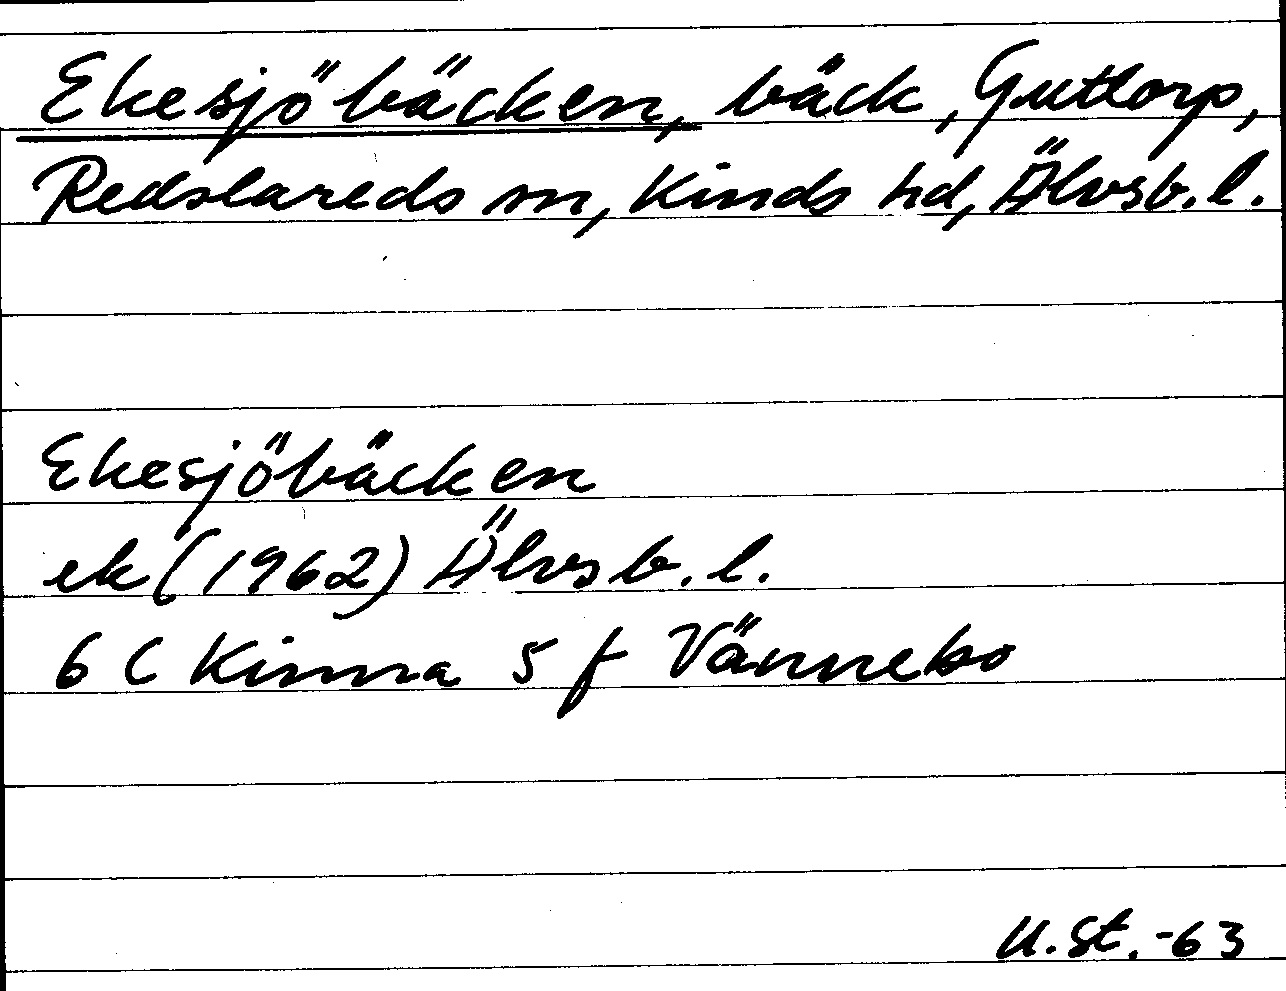 Ekesjöbäcken, bäck, Guttorp,
Redslareds sn, Kinds hd, Älvsb. l.
Ekesjöbäcken
ek (1962) Älvsb. l.
6 C Kinna 5 f Vännebo
U. St. -63